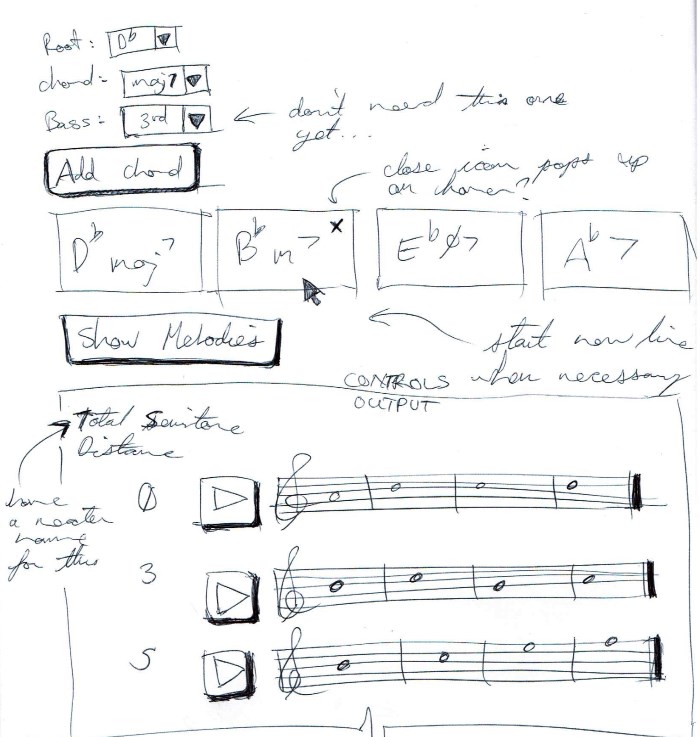 Root: D♭
chord: maj7
Bass: 3rd
don't need this one
yet...
Add chord
close icon pops up
on hover?
D♭ maj7
B♭ m7 x
E♭ ø7
A♭ 7
Show Melodies
start new line
when necessary
CONTROLS
OUTPUT
Total Semitone
Distance
have
a neater
name
for this
0
3
5